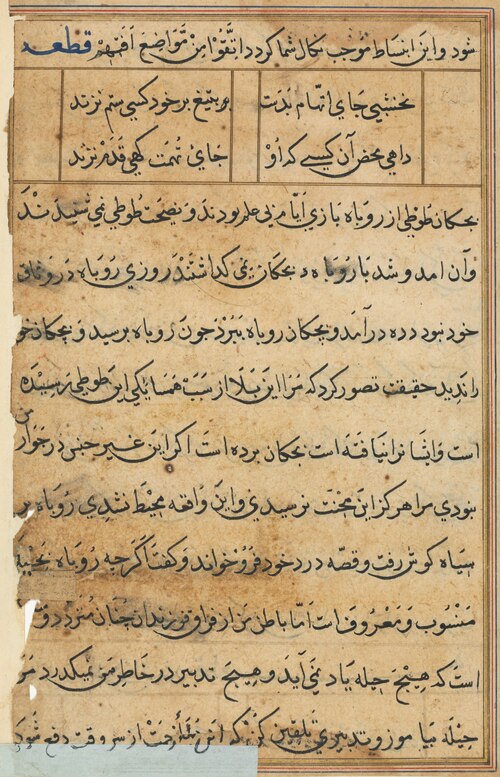 شود و این انبساط موجب نکال شما کردد اتّقوا من مواضع التّهم قطعه
نخشبی جای اتّهام بدست بر تیغ بر خود کسی ستم نزند
دامی محض آن کسی که او جای تهمت کهی قدم نزند
بچکان طوطی از روباه بازی ایام بی علم بودند و نصیحت طوطی نمی شنیدند
و آن امد و شد با روباه بچکان نمی کذاشتند روزی روباه در وثاق
خود نبود دده درآمد و بچکان روباه ببرد چون روباه برسید و بچکان خو
را ندید حقیقت تصور کرد که مرا این بلا از سبب همسایکی این طوطی رسیده
است و ایشا نرا نیافته است بچکان برده است اکر این غیر جنس در جوار من
نبودی مرا هرکز این محنت نرسیدی و این واقعه محیط نشدی روباه بر
سیاه کوش رفت و قصّه درد خود فرو خواند و کفت اکرچه روباه بحیله
منسوب و معروف است امّا باطن من از فراق فرزندان چنان
است که هیچ حیله یاد نمی آید و هیچ تدبیر در خاطر من نمیکدرد مر
حیله بیاموز و تدبیری تلقین کن که این زحمت از سر وقت دفع شود